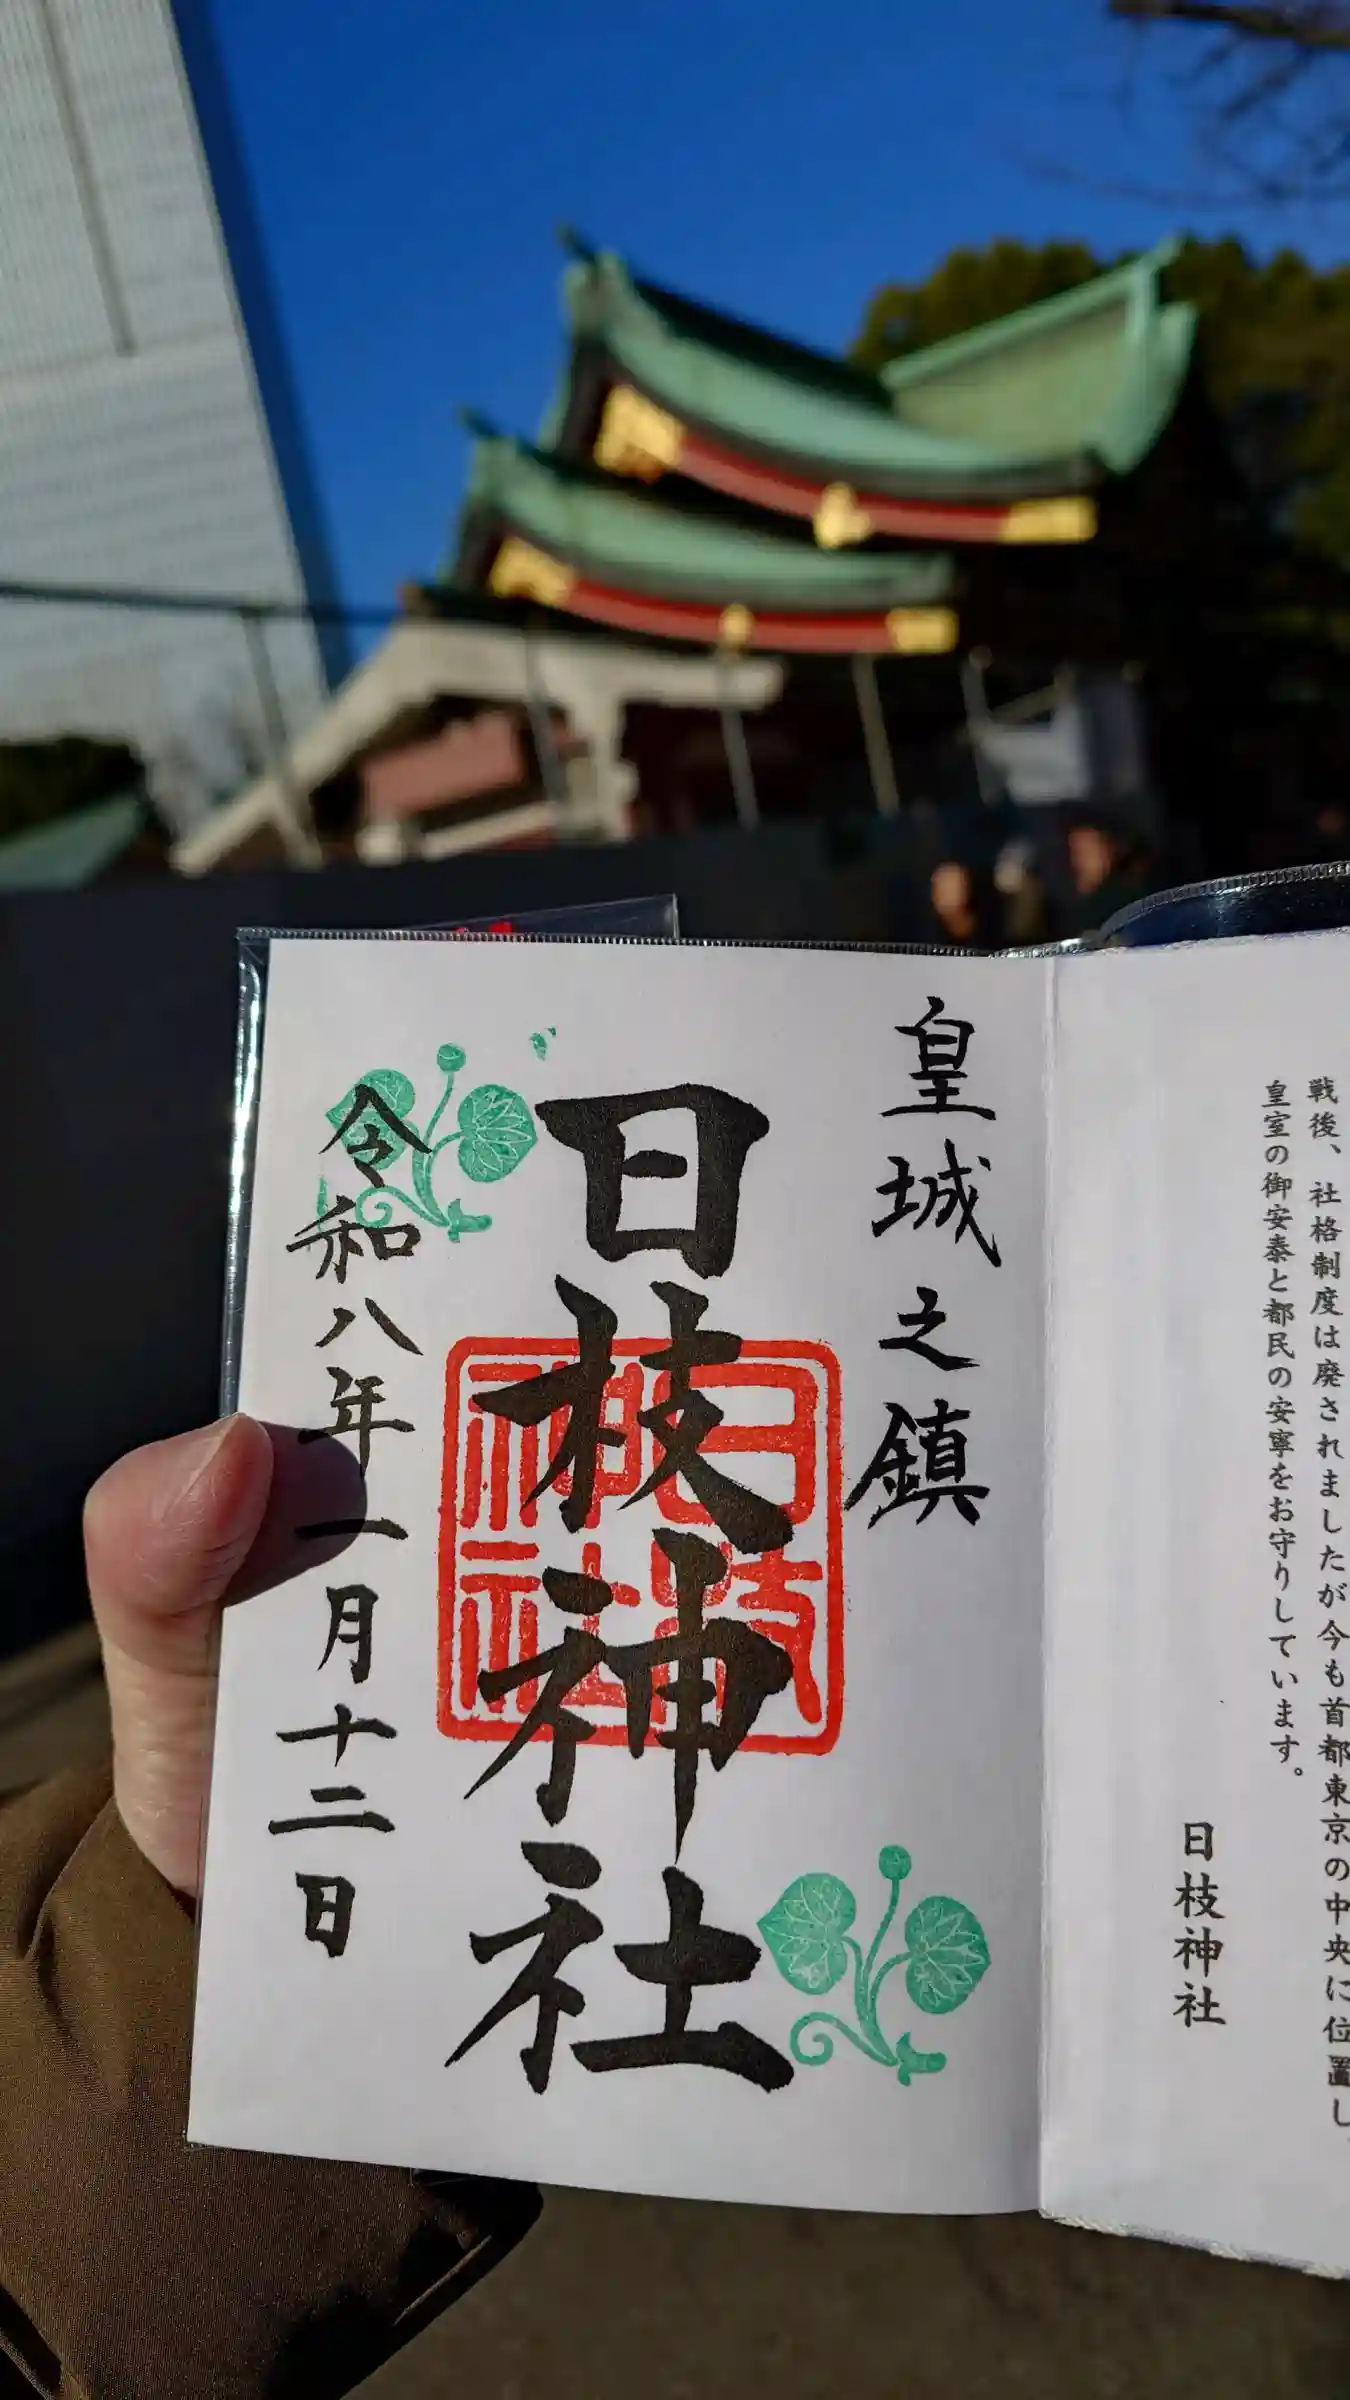 戦後、社格制度は廃されましたが今も首都東京の中央に位置し、
皇室の御安泰と都民の安寧をお守りしています。
日枝神社
皇城之鎮
日枝神社
日枝
神社
令和八年一月十二日